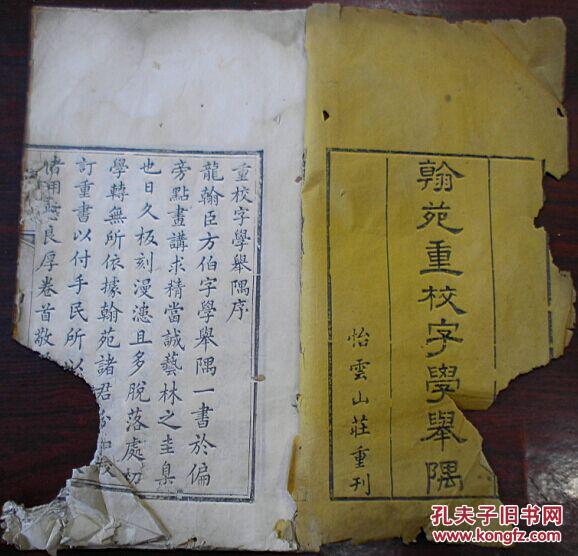 翰苑重校字學舉隅
怡雲山莊重刊
重校字學舉隅序
龍翰臣方伯字學舉隅一書於偏
旁點畫講求精當誠藝林之圭臬
也日久板刻漫漶且多脫落處初
學轉無所依據翰苑諸君
訂重書以付手民所以
良厚卷首敬
孔夫子旧书网
www.kongfz.com